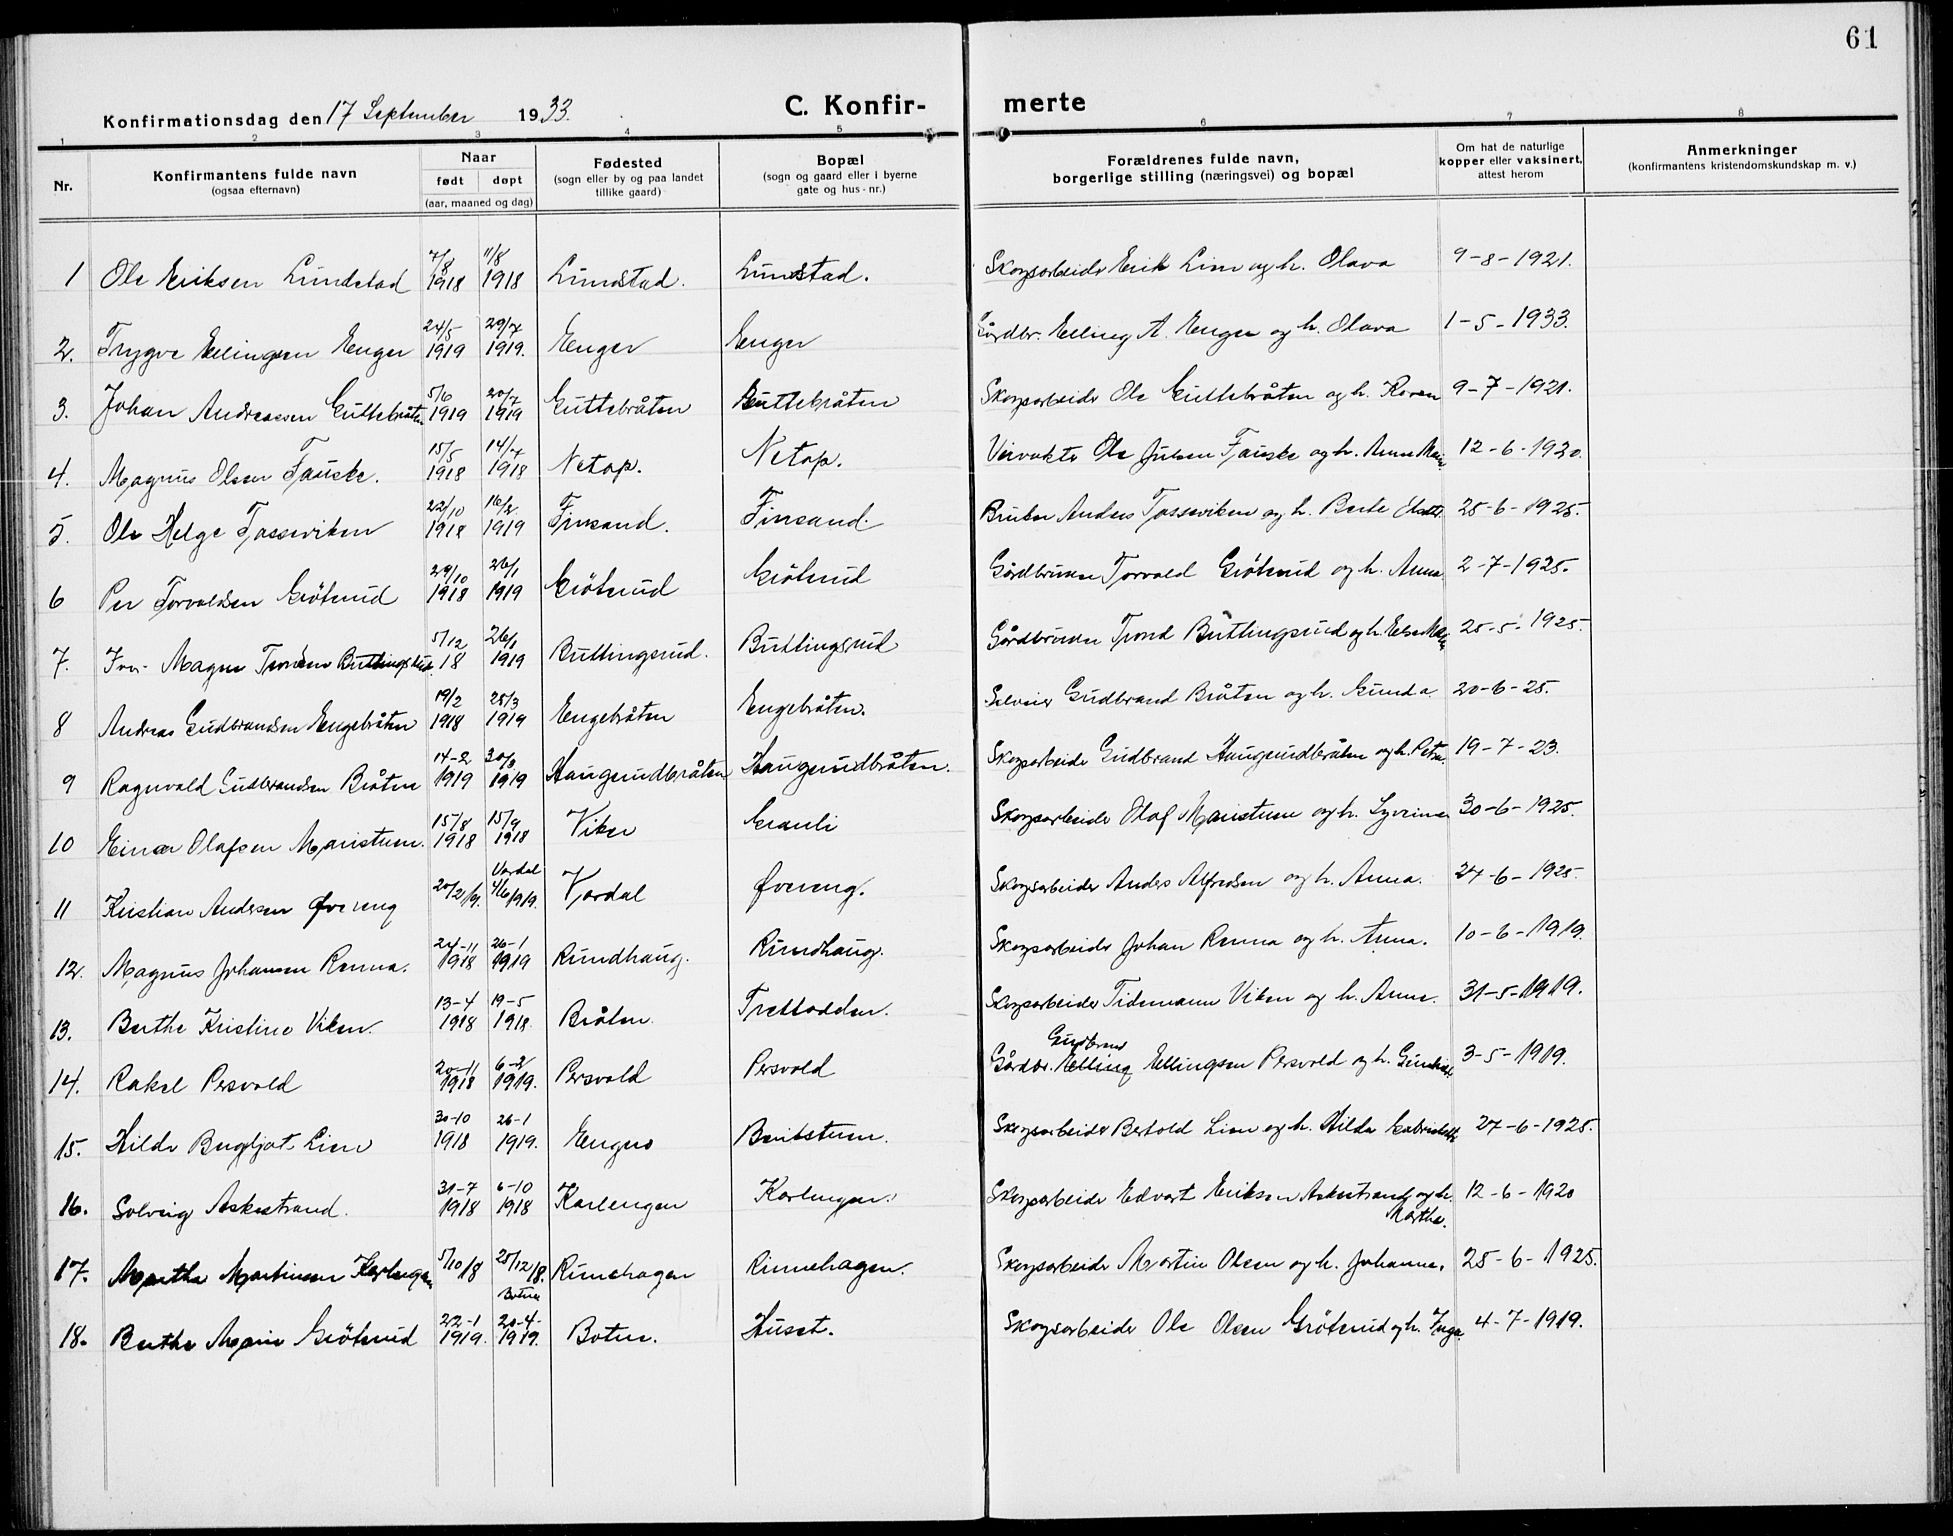 61
Konfirmationsdag den 17 September 1933.
C. Konfir- merte
1 2 3 4 5 6 7 8
Nr.
Konfirmantens fulde navn
(ogsaa efternavn)
Naar
født døpt
(aar, maaned og dag)
Fødested
(sogn eller by og paa landet
tillike gaard)
Bopæl
(sogn og gaard eller i byerne
gate og hus-nr.)
Forældrenes fulde navn,
borgerlige stilling (næringsvei) og bopæl
Om hat de naturlige
kopper eller vaksinert,
attest herom
Anmerkninger
(konfirmantens kristendomskundskap m. v.)
1 Ole Eriksen Lundstad 7/8 1918 11/8 1918 Lundstad. Lundstad. Skogsarbeider Erik Lien og h. Olava 9-8-1921.
2. Trygve Ellingsen Enger 24/5 1919 29/7 1919. Enger Enger Gårdbr. Elling A. Enger og h. Olava 1-5-1933.
3. Johan Andreassen Guttebråten 5/6 1919 20/7 1919 Guttebråten Guttebråten Skogsarbeider Ole Guttebråten og h. Karen 9-7-1921.
4. Magnus Olsen Fauske. 15/5 1918 14/7 1918 Netop. Netop. Veivokter Ole Julsen Fauske og h. Anne Marie 12-6-1920.
5. Ole Helge Tosseviken 22/10 1918 16/2 1919 Finsand. Finsand. Bruker Anders Tosseviken og h. Berte 25-6-1925.
6 Per Torvaldsen Grötrud 29/10 1918 26/1 1919 Grötrud Grötrud Gårdbruker Torvald Grötrud og h. Anna. 2-7-1925.
7. Iver Magne Trondsen Buttingsrud 5/12 18 26/1 1919 Buttingsrud. Buttingsrud Gårdbruker Trond Buttingsrud og h. Else Marie 25-5-1925.
8 Andreas Gudbrandsen Engebråten 19/2 1918 25/3 1919 Engebråten Engebråten. Selveier Gudbrand Bråten og h. Gunda 20-6-25.
9 Ragnvald Gudbrandsen Bråten 14-2 1919 30/3 1919 Haugsrudbråten Haugsrudbråten. Skogsarbeider Gudbrand Haugsrudbråten og h. Petra. 19-7-23.
10 Einar Olafsen Maristuen. 15/8 1918 15/9 1918 Viker Granli Skogsarbeider Olaf Maristuen og h. Syverine 30-6-1925.
11 Kristian Andersen Øvereng 20/2 19. Vardal 4/6 1919. Vardal Øvereng. Skogsarbeider Anders Alfredsen og h. Anna. 24-6-1925.
12. Magnus Johansen Renna. 24-11 1918 26-1 1919 Rundhaug. Rundhaug. Skogsarbeider Johan Renna og h. Anna. 10-6-1919.
13. Berthe Kristine Viken. 13-4 1918 19-5 1918. Bråten. Trettodden. Skogsarbeider Tidemann Viken og h. Anne. 31-5-1919.
14. Rakel Persvold 20-11 1918 6-2 1919. Persvold Persvold Gårdbr. Gudbrand Elling Ellingsen Persvold og h. Gunhild 3-5-1919.
15. Hilde Bergljot Lien 30-10 1918 26-1 1919. Enger Beritstuen. Skogsarbeider Bertold Lien og h. Hilda Gabrielle 27-6-1925.
16. Solveig Askestrand. 31-7 1918 6-10 1918 Karlengen Karlengen. Skogsarbeider Edvart Eriksen Askestrand og h. Marthe. 12-6-1920
17. Marthe Martinsen Karlengen 5/10 18 25/12 18. Rinnehagen Rinnehagen. Skogsarbeider Martin Olsen og h. Johanne. 25-6-1925.
18. Berthe Marie Grötrud 22-1 1919. Botne 20-4- 1919. Botne. Huset. Skogsarbeider Ole Olsen Grötrud og h. Inga 4-7-1919.